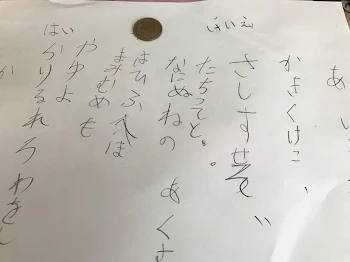 いいえ
はい
あい
かきくけこ
さしすせそ
たちつてと
なにぬねの
はひふへほ
まみむめも
やゆよ
らりるれろわをん
か